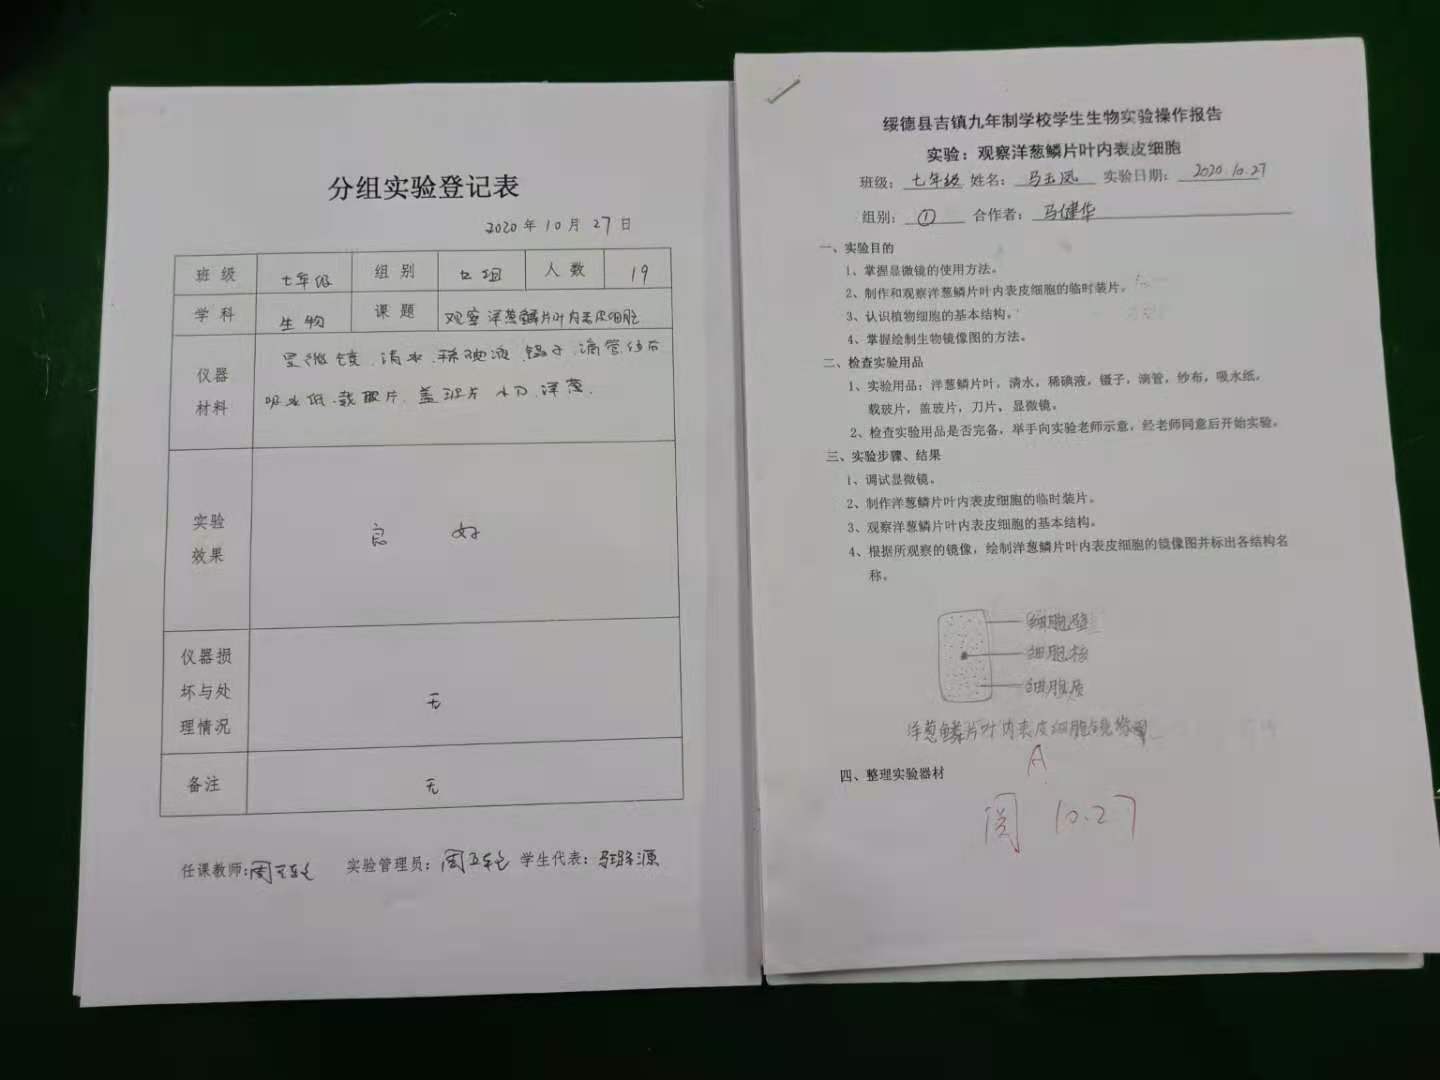 分组实验登记表
2020年10月27日
班级 七年级 组别 七组 人数 19
学科 生物 课题 观察洋葱鳞片叶内表皮细胞
仪器材料 显微镜、清水、稀碘液、镊子、滴管、纱布
吸水纸、载玻片、盖玻片、刀、洋葱.
实验效果 良好
仪器损坏与处理情况 无
备注 无
任课教师: 实验管理员: 学生代表:
绥德县吉镇九年制学校学生生物实验操作报告
实验：观察洋葱鳞片叶内表皮细胞
班级：七年级 姓名：马玉凤 实验日期：2020.10.27
组别：① 合作者：马健华
一、实验目的
1、掌握显微镜的使用方法。
2、制作和观察洋葱鳞片叶内表皮细胞的临时装片。
3、认识植物细胞的基本结构。
4、掌握绘制生物镜像图的方法。
二、检查实验用品
1、实验用品：洋葱鳞片叶，清水，稀碘液，镊子，滴管，纱布，吸水纸，
载玻片，盖玻片，刀片，显微镜。
2、检查实验用品是否完备，举手向实验老师示意，经老师同意后开始实验。
三、实验步骤、结果
1、调试显微镜。
2、制作洋葱鳞片叶内表皮细胞的临时装片。
3、观察洋葱鳞片叶内表皮细胞的基本结构。
4、根据所观察的镜像，绘制洋葱鳞片叶内表皮细胞的镜像图并标出各结构名
称。
细胞壁
细胞核
细胞质
洋葱鳞片叶内表皮细胞镜像图
A
四、整理实验器材
阅 10.27